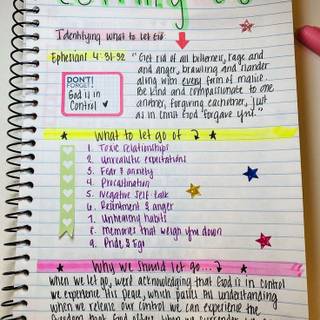 Identifying what to let go
Ephesians 4:31-32
"Get rid of all bitterness, rage and
and anger, brawling and slander
along with every form of malice.
Be kind and compassionate to one
another, forgiving eachother, just
as in christ God forgave you."
DON'T
FORGET!
God is in
Control
What to let go of
1. Toxic relationships
2. unrealistic expectations
3. Fear & anxiety
4. Procrastination
5. Negative self-talk
6. Resentment & anger
7. Unhealthy habits
8. Memories that weigh you down
9. Pride & Ego
Why we should let go...
When we let go, we're acknowledging that God is in control
We experience His peace, which passes all understanding
when we release our control we can experience the
freedom that God offers when we surrender